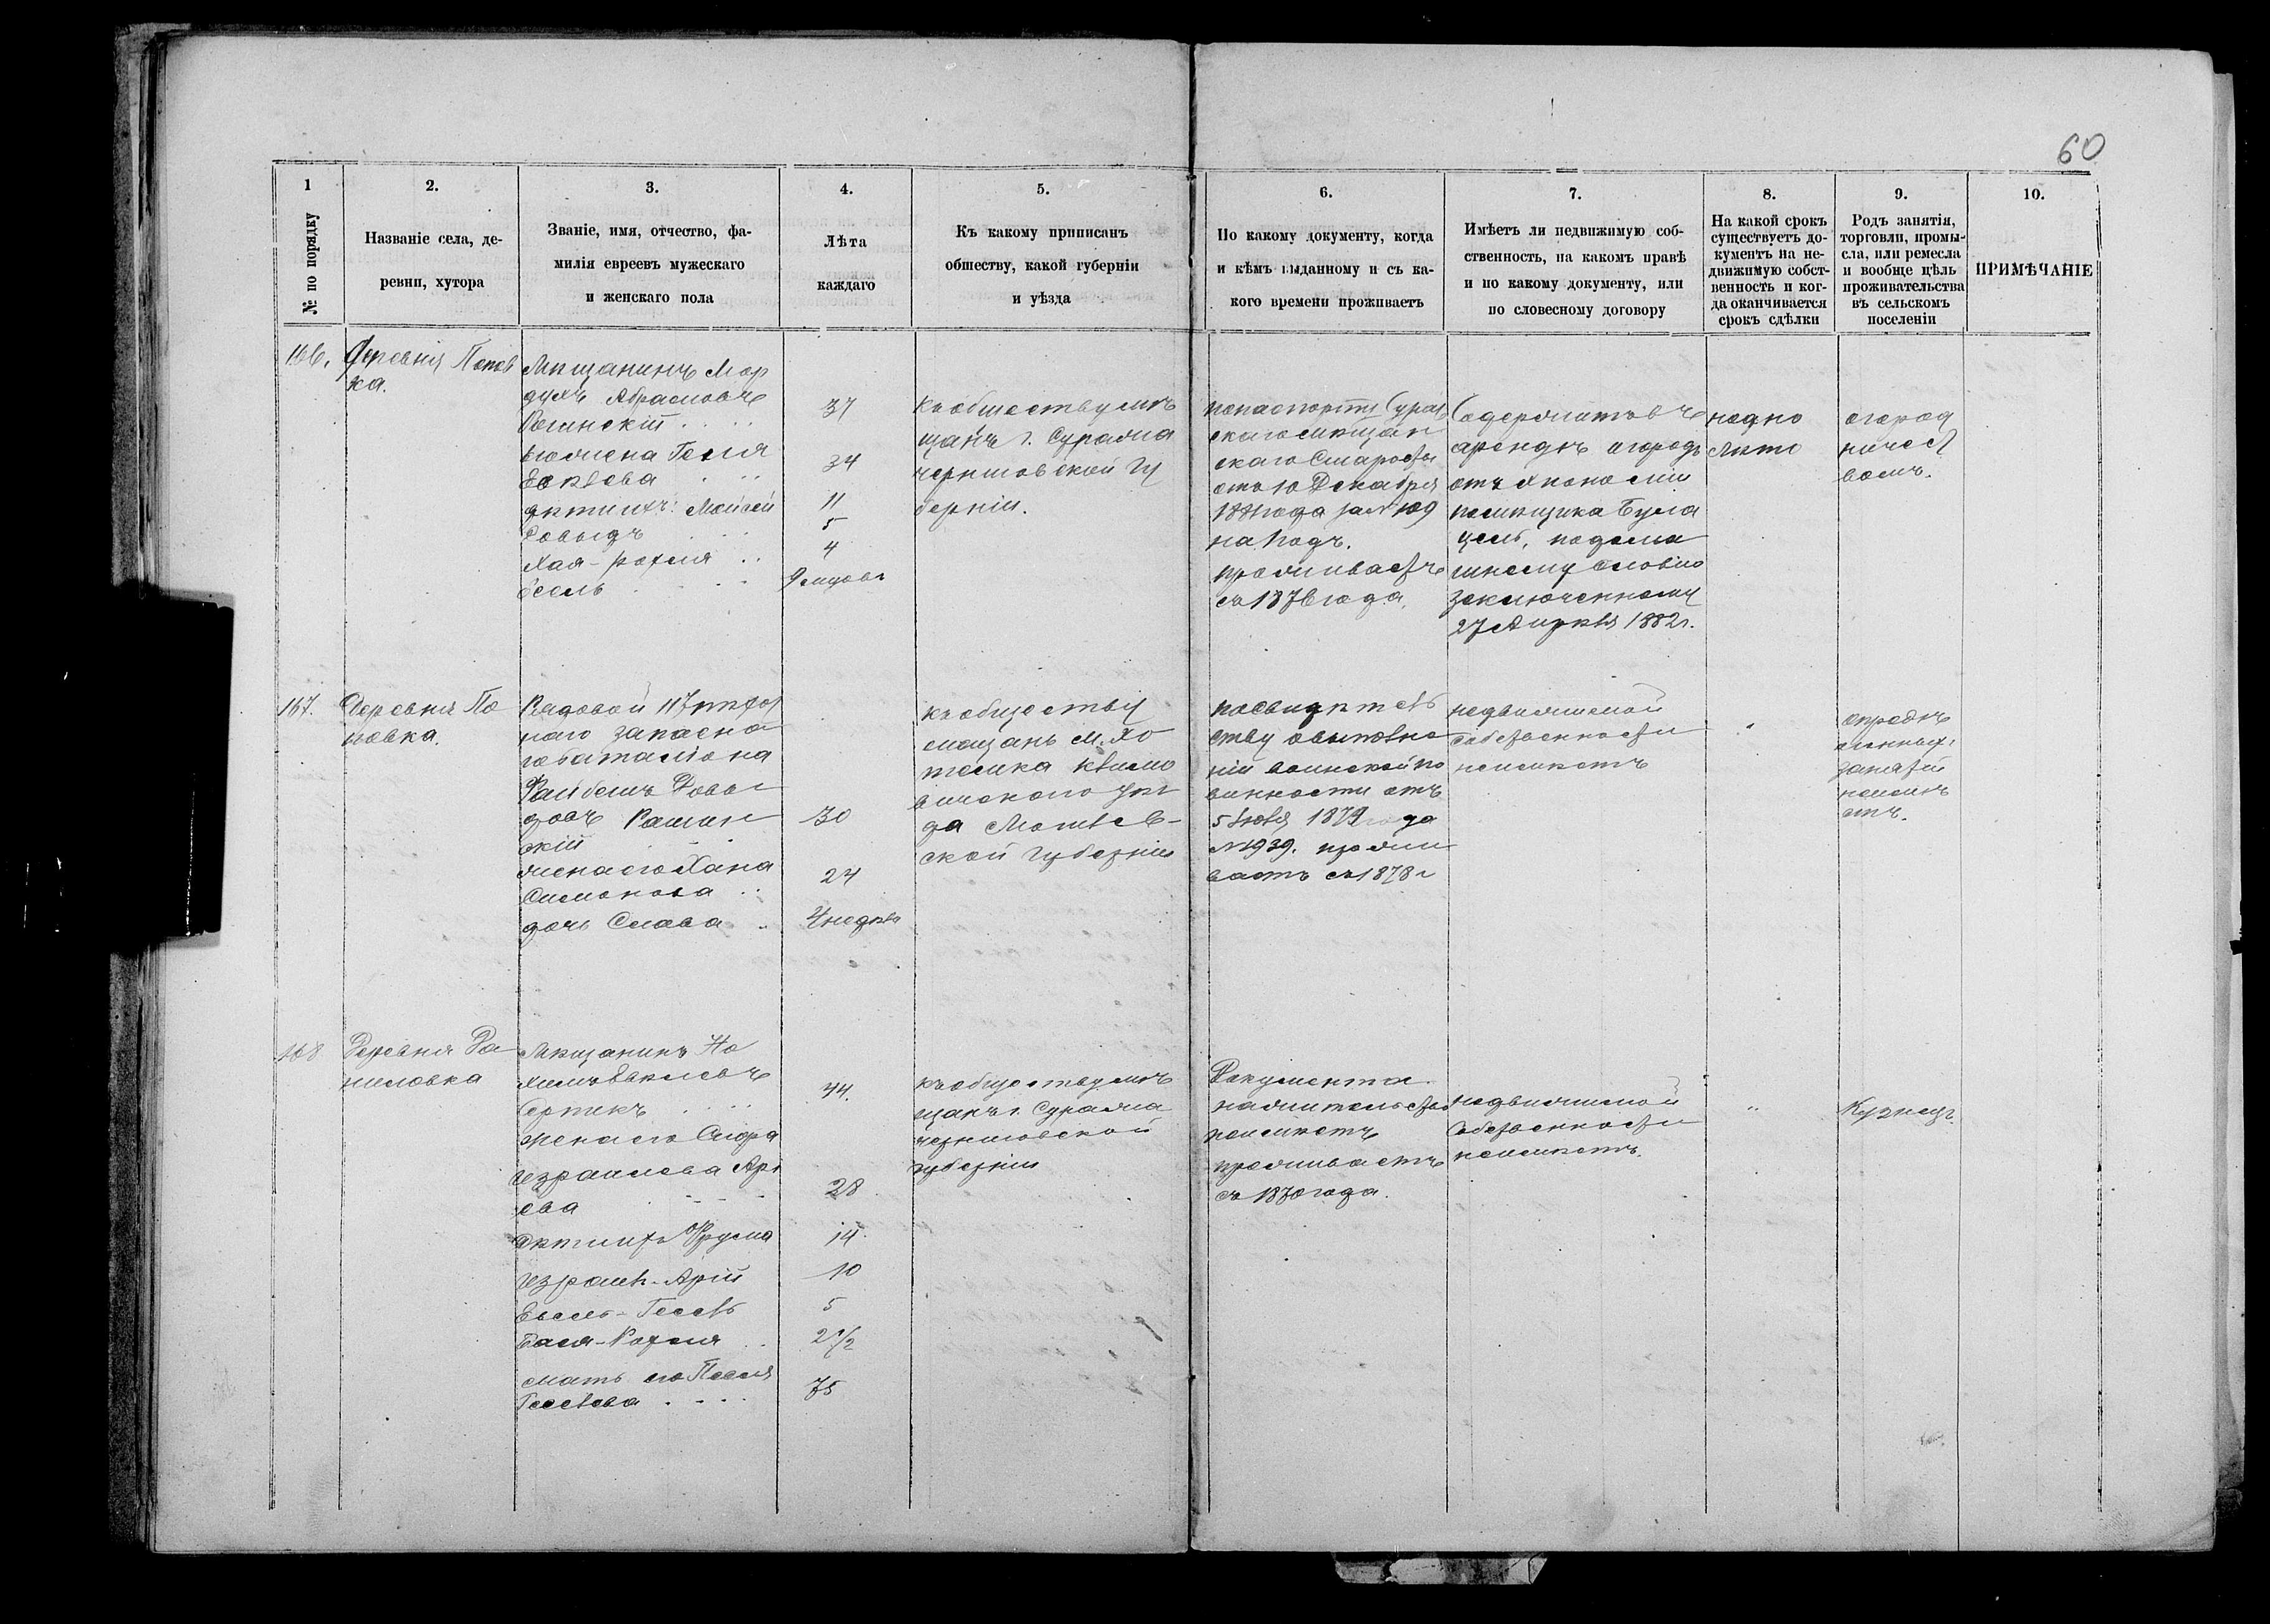 60
1
№ по порядку
2.
Названіе села, де-
ревни, хутора
3.
Званіе, имя, отчество, фа-
милія евреевъ мужескаго
и женскаго пола
4.
Лѣта
каждаго
5.
Къ какому приписанъ
обществу, какой губерніи
и уѣзда
6.
По какому документу, когда
и кѣмъ выданному и съ ка-
кого времени проживаетъ
7.
Имѣетъ ли недвижимую соб-
ственность, на какомъ правѣ
и по какому документу, или
по словесному договору
8.
На какой срокъ
существуетъ до-
кументъ на не-
движимую собст-
венность и ког-
да оканчивается
срокъ сдѣлки
9.
Родъ занятія,
торговли, промы-
сла, или ремесла
и вообще цѣль
проживательства
въ сельскомъ
поселеніи
10.
ПРИМѢЧАНІЕ
166.
Деревня Попов
ка.
Мѣщанинъ Мор
духъ Абрамовъ
его жена Геся
дѣти ихъ: Мойсей
Довыдъ
Хая-рохля
37
34
11
5
4
9 мцовъ
Къ обществу мѣ
щанъ г. Суража
черниговской гу
берніи.
по паспорту Сураж
скаго мѣщан
скаго Старосты
отъ 10 Декабря
1881 года за №109
на 1 годъ.
проживаетъ
съ 1876 года.
Содержитъ въ
арендѣ огородъ
отъ экономіи
помѣщика Була
цель, по дома
шнему словію
заключенному
27 Апрѣля 1882 г.
на одно
лѣто
огород
ничест
вомъ.
167.
Деревня По
повка.
Рядовой 117 пѣхот
наго запасна
го баталіона
Файбешъ Довы
довъ Рашин
скій
жена его Хана
Симонова
дочь Слава
30
24
4 недѣли
къ обществу
мещанъ м. Хо
тимска Климо
вичскаго уѣз
да Могилев-
ской губерніи
по свидѣтель
ству о выполне
ніи воинской по
винности отъ
5 Іюля 1879 года
№1939. прожи
ваетъ съ 1878 г
недвижимой
собственности
неимѣетъ
опредѣ
ленныхъ
занятій
неимѣ
етъ.
168
Деревня Да
ниловка
Мѣщанинъ Но
химъ
жена его Сифра
Израилева Арь
ева
дѣти ихъ Фрума
Израиль-Арій
Бася-Рохля
мать его Песя
44.
28
14.
10
5
2 1/2
75
къ обществу мѣ
щанъ г. Суража
черниговской
губерніи
Документа
на жительство
неимѣетъ
проживаетъ
съ 1870 года.
недвижимой
собственности
неимѣетъ.
"
Кузнецъ.